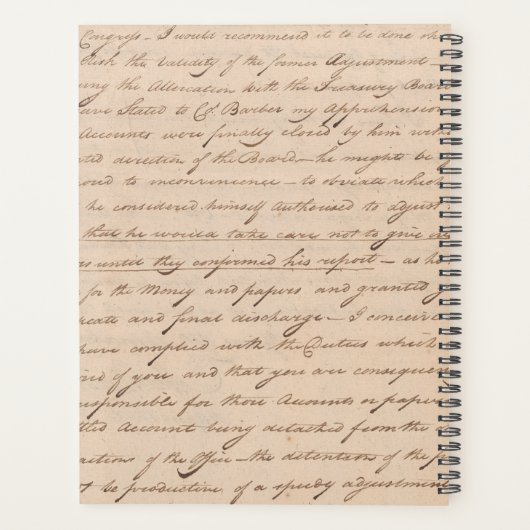 Congress - I would recommend it to be done
lish the Validity of the former Adjustment -
ing the Altercation with the Treasury Board
ave Stated to Cl. Barber my Apprehension
Accounts were finally closed by him with
ted direction of the Board - he might be
osed to inconvenience - to obviate which
he considered himself Authorised to adjust
that he would take care not to give
rs until they confirmed his report - as he
for the Money and papers and granted
icate and final discharge - I conceive
have complied with the Duties which
ired of you and that you are consequen
responsible for those Accounts or papers
ttled Account being detached from the
actions of the Office - the detention of the
t be productive of a speedy adjustment